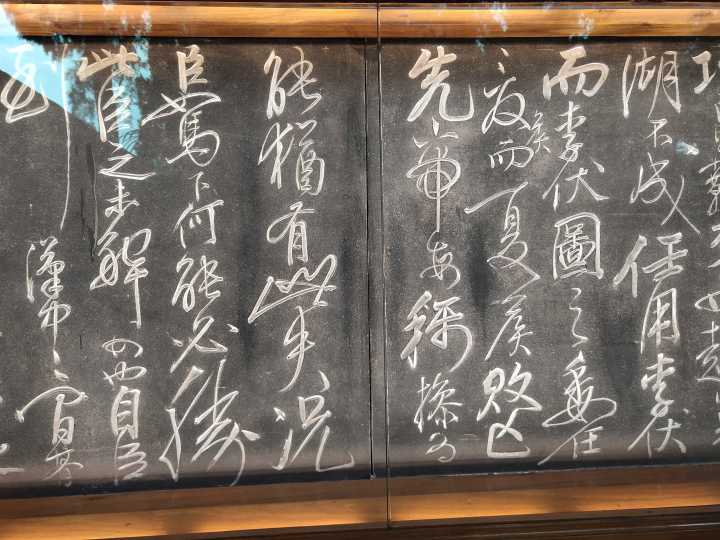 湖不成任用李伏
而李伏圖之委任
夏侯而夏侯敗亡
先帝每稱操為
能猶有此失況
臣駑下何能必勝
此臣之未解四也自臣
到漢中〻間朞